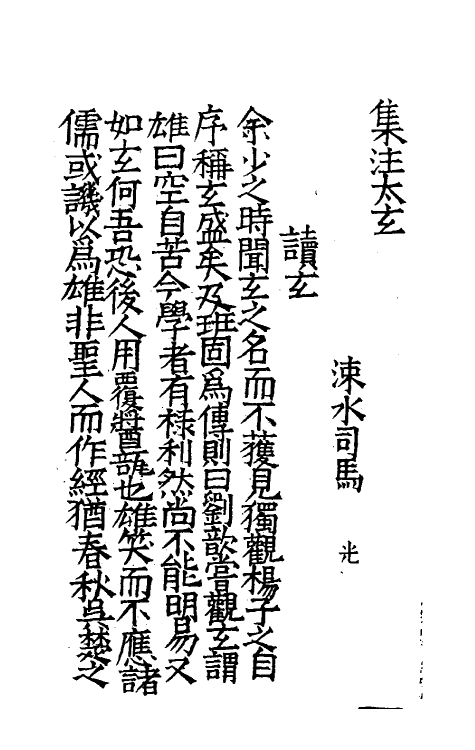 集注太玄
涑水司馬光
讀玄
余少之時聞玄之名而不獲見獨觀楊子之自
序稱玄盛矣及班固爲傳則曰劉歆嘗觀玄謂
雄曰空自苦今學者有祿利然尚不能明易又
如玄何吾恐後人用覆醬瓿也雄笑而不應諸
儒或譏以爲雄非聖人而作經猶春秋吳楚之